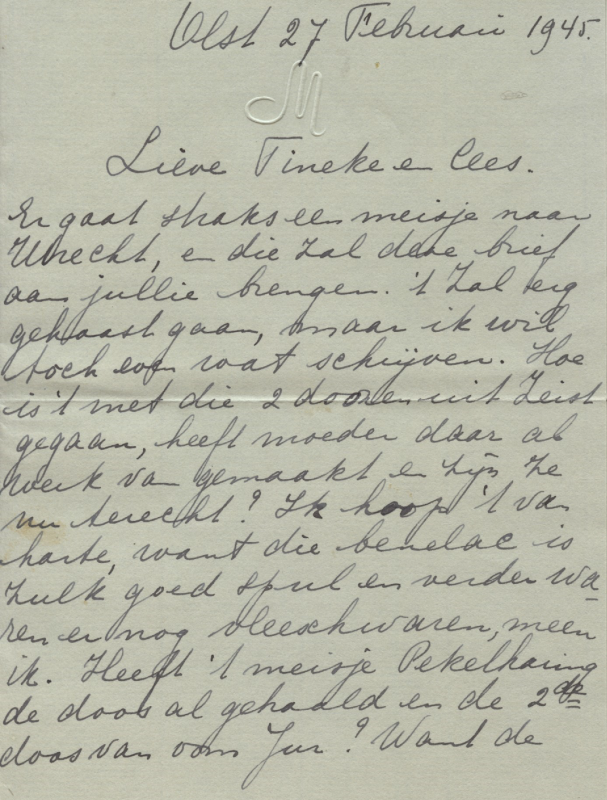 Olst 27 Februari 1945.
M
Lieve Tineke en Cees.
Er gaat straks een meisje naar
Utrecht, en die zal deze brief
aan jullie brengen. 't Zal erg
gehaast gaan, maar ik wil
toch even wat schrijven. Hoe
is 't met die 2 doozen uit Zeist
gegaan, heeft moeder daar al
werk van gemaakt en zijn ze
nu terecht? Ik hoop 't van
harte, want die benelac is
zulk goed spul en verder wa-
ren er nog vleeschwaren, meen
ik. Heeft 't meisje Pekelharing
de doos al gehaald en de 2de
doos van oom Jur? Want de